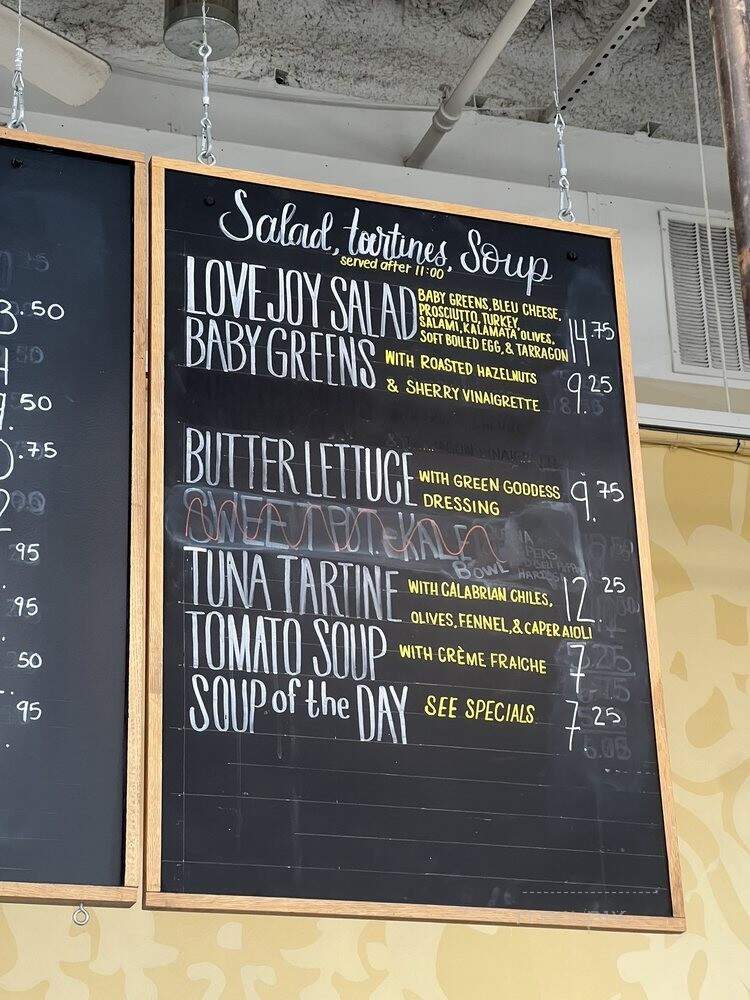 Salad, tartines, Soup
served after 11:00
LOVEJOY SALAD BABY GREENS, BLEU CHEESE,
PROSCIUTTO, TURKEY,
SALAMI, KALAMATA OLIVES,
SOFT BOILED EGG, & TARRAGON 14.75
BABY GREENS WITH ROASTED HAZELNUTS
& SHERRY VINAIGRETTE 9.25
BUTTER LETTUCE WITH GREEN GODDESS
DRESSING 9.75
SWEET POT. & KALE
BOWL
TUNA TARTINE WITH CALABRIAN CHILES,
OLIVES, FENNEL, & CAPER AIOLI 12.25
TOMATO SOUP WITH CRÈME FRAICHE 7
SOUP of the DAY SEE SPECIALS 7.25
3.50
50
.75
95
95
50
95